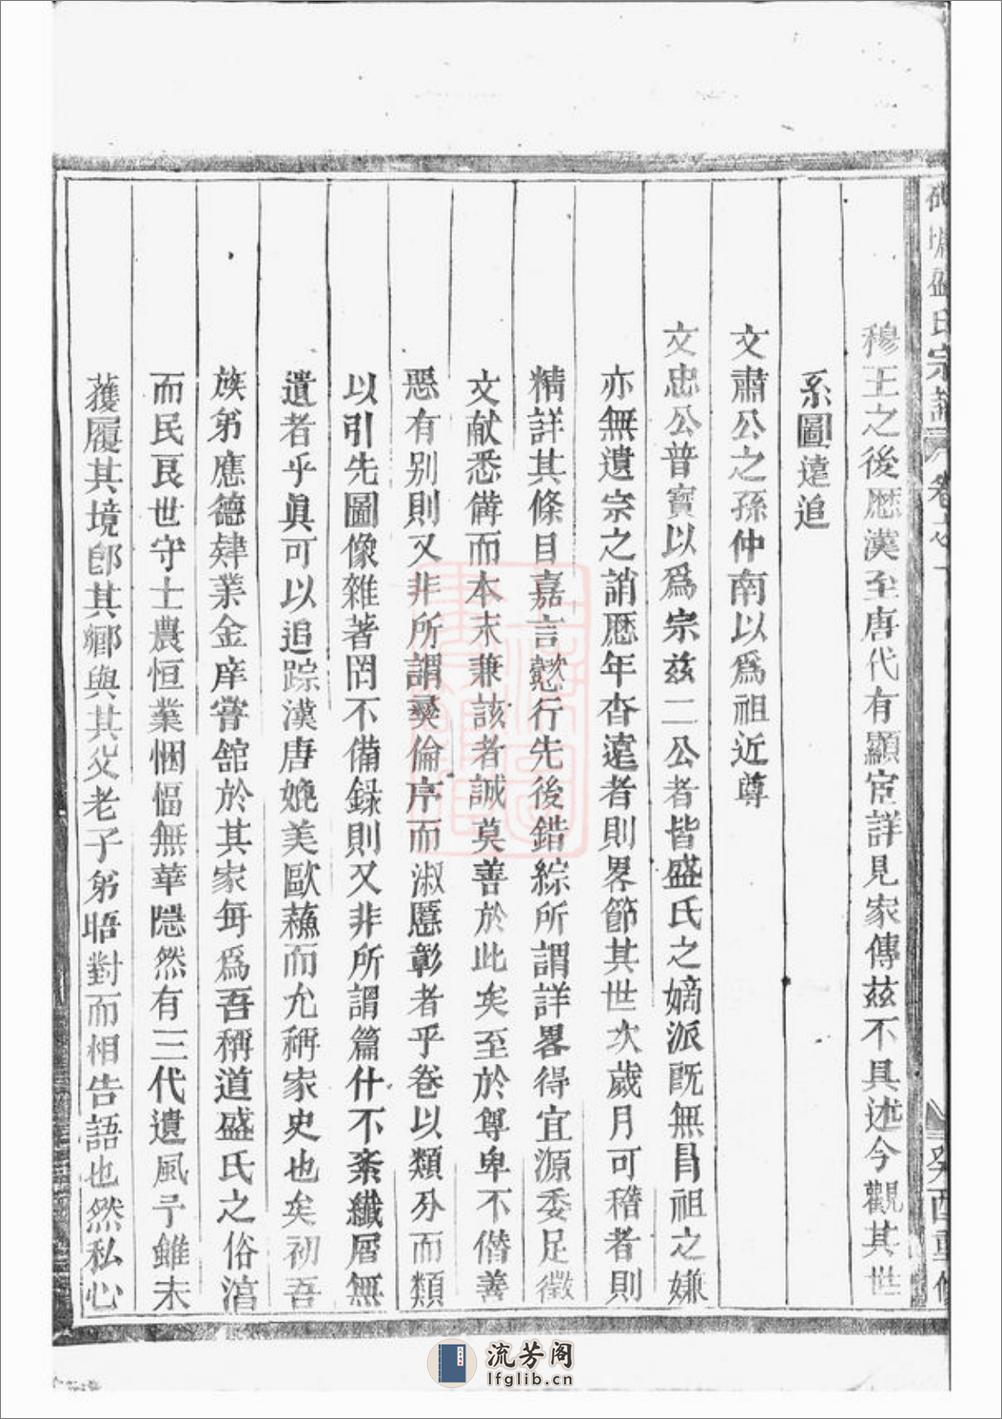 盛氏宗譜 卷之 癸酉重修
穆王之後歷漢至唐代有顯宦詳見家傳兹不具述今觀其世
系圖遠追
文肅公之孫仲南以爲祖近尊
文忠公普寶以爲宗兹二公者皆盛氏之嫡派既無冒祖之嫌
亦無遺宗之誚歷年杳遠者則畧節其世次歲月可稽者則
精詳其條目嘉言懿行先後錯綜所謂詳畧得宜源委足徵
文献悉備而本末兼該者誠莫善於此矣至於尊卑不僭善
惡有别則又非所謂彛倫序而淑慝彰者乎卷以類分而類
以引先圖像雜著罔不備録則又非所謂篇什不紊纖屑無
遺者乎眞可以追踪漢唐媲美歐蘇而允稱家史也矣初吾
族弟應德肄業金庠嘗舘於其家每爲吾稱道盛氏之俗淳
而民良世守士農恒業悃愊無華隱然有三代遺風予雖未
獲履其境卽其鄉與其父老子弟晤對而相告語也然私心
流芳阁
lfglib.cn